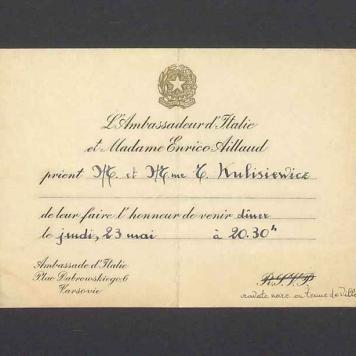 L'Ambassadeur d'Italie
et Madame Enrico Aillaud
prient M. et Mme T. Kulisiewicz
de leur faire l'honneur de venir diner
le jeudi, 23 mai à 20.30h
Ambassade d'Italie
Plac Dąbrowskiego, 6
Varsovie
R.S.V.P.
cravate noire ou tenue de ville